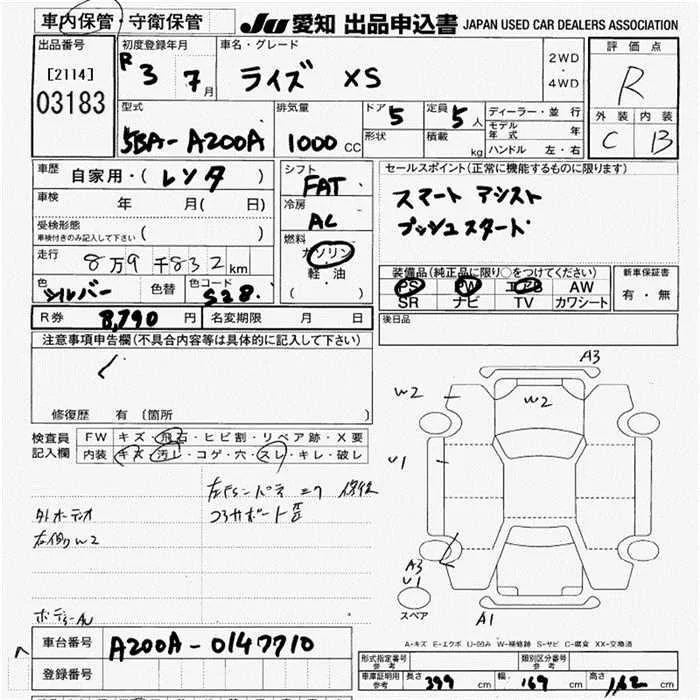 車内保管・守衛保管
JU 愛知 出品申込書 JAPAN USED CAR DEALERS ASSOCIATION
出品番号
[2114]
03183
初度登録年月
R 3 7月
車名・グレード
ライズ XS
2WD
・
4WD
評価点
R
外装 内装
C B
型式
5BA-A200A
排気量
1000 CC
ドア 5
定員 5人
形状
積載 kg
ディーラー・並行
モデル年式 年
ハンドル 左・右
車歴
自家用・(レンタ)
車検 年 月(日)
受検形態
車検付きのみ記入して下さい ( )
走行 8万9千832km
色 シルバー 色替 色コード S28.
シフト
FAT
冷房
AC
燃料
ガソリン
軽・油
( )
セールスポイント(正常に機能するものに限ります)
スマート アシスト
プッシュスタート
装備品(純正品に限り○をつけてください)
PS PW エアB AW
SR ナビ TV カワシート
新車保証書
有・無
R券 8,790円 名変期限 月 日
後日品
注意事項申告欄(不具合内容等は具体的に記入して下さい)
修復歴 有 〔箇所 〕
検査員
記入欄
FW キズ・飛石・ヒビ割・リペア跡・X要
内装 キズ・汚レ・コゲ・穴・スレ・キレ・破レ
外オーディオ
右側W2
A3
W2
W2
U1
A3
U1
スペア
A1
A-キズ E-エクボ U-凹み W-補修跡 S-サビ C-腐食 XX-交換済
車台番号 A200A-0147710
登録番号
形式指定番号
参考
類別区分番号
参考
車庫証明用
参考
長さ 399 cm 幅 169 cm 高さ 162 cm